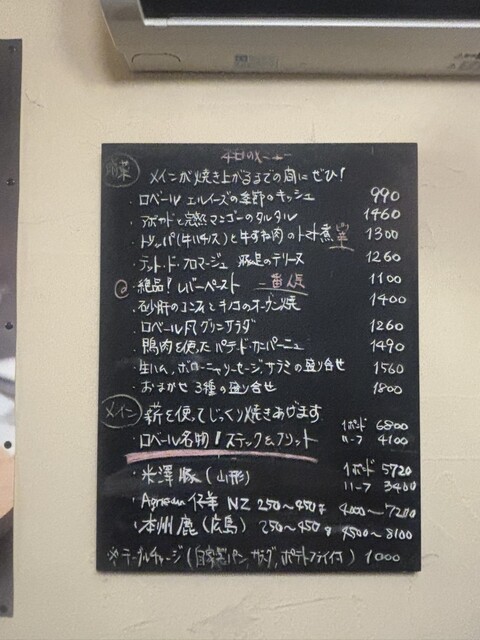 本日のメニュー
前菜 メインが焼き上がるまでの間にぜひ!
・ロベール エルイーズの季節のキッシュ 990
・アボカドと完熟マンゴーのタルタル 1460
・トリッパ(牛ハチノス)と牛すね肉のトマト煮 1300
・テット・ド・フロマージュ 豚足のテリーヌ 1260
・絶品!レバーペースト 一番人気 1100
・砂肝のコンフィとキノコのオーブン焼 1400
・ロベール風グリーンサラダ 1260
・鴨肉を使ったパテ・ド・カンパーニュ 1490
・生ハム、ボローニャソーセージ、サラミの盛り合せ 1560
・おまかせ 3種の盛り合せ 1800
メイン 薪を使てじっくり焼きあげます
・ロベール名物!ステック&フリット 1ポンド 6800
ハーフ 4100
・米澤豚(山形) 1ポンド 5720
ハーフ 3400
・Agneau 仔羊 NZ 250〜450g 4000〜7200
・本州鹿(広島) 250〜450g 4500〜8100
※テーブルチャージ(自家製パン、ポテトフライ付) 1000